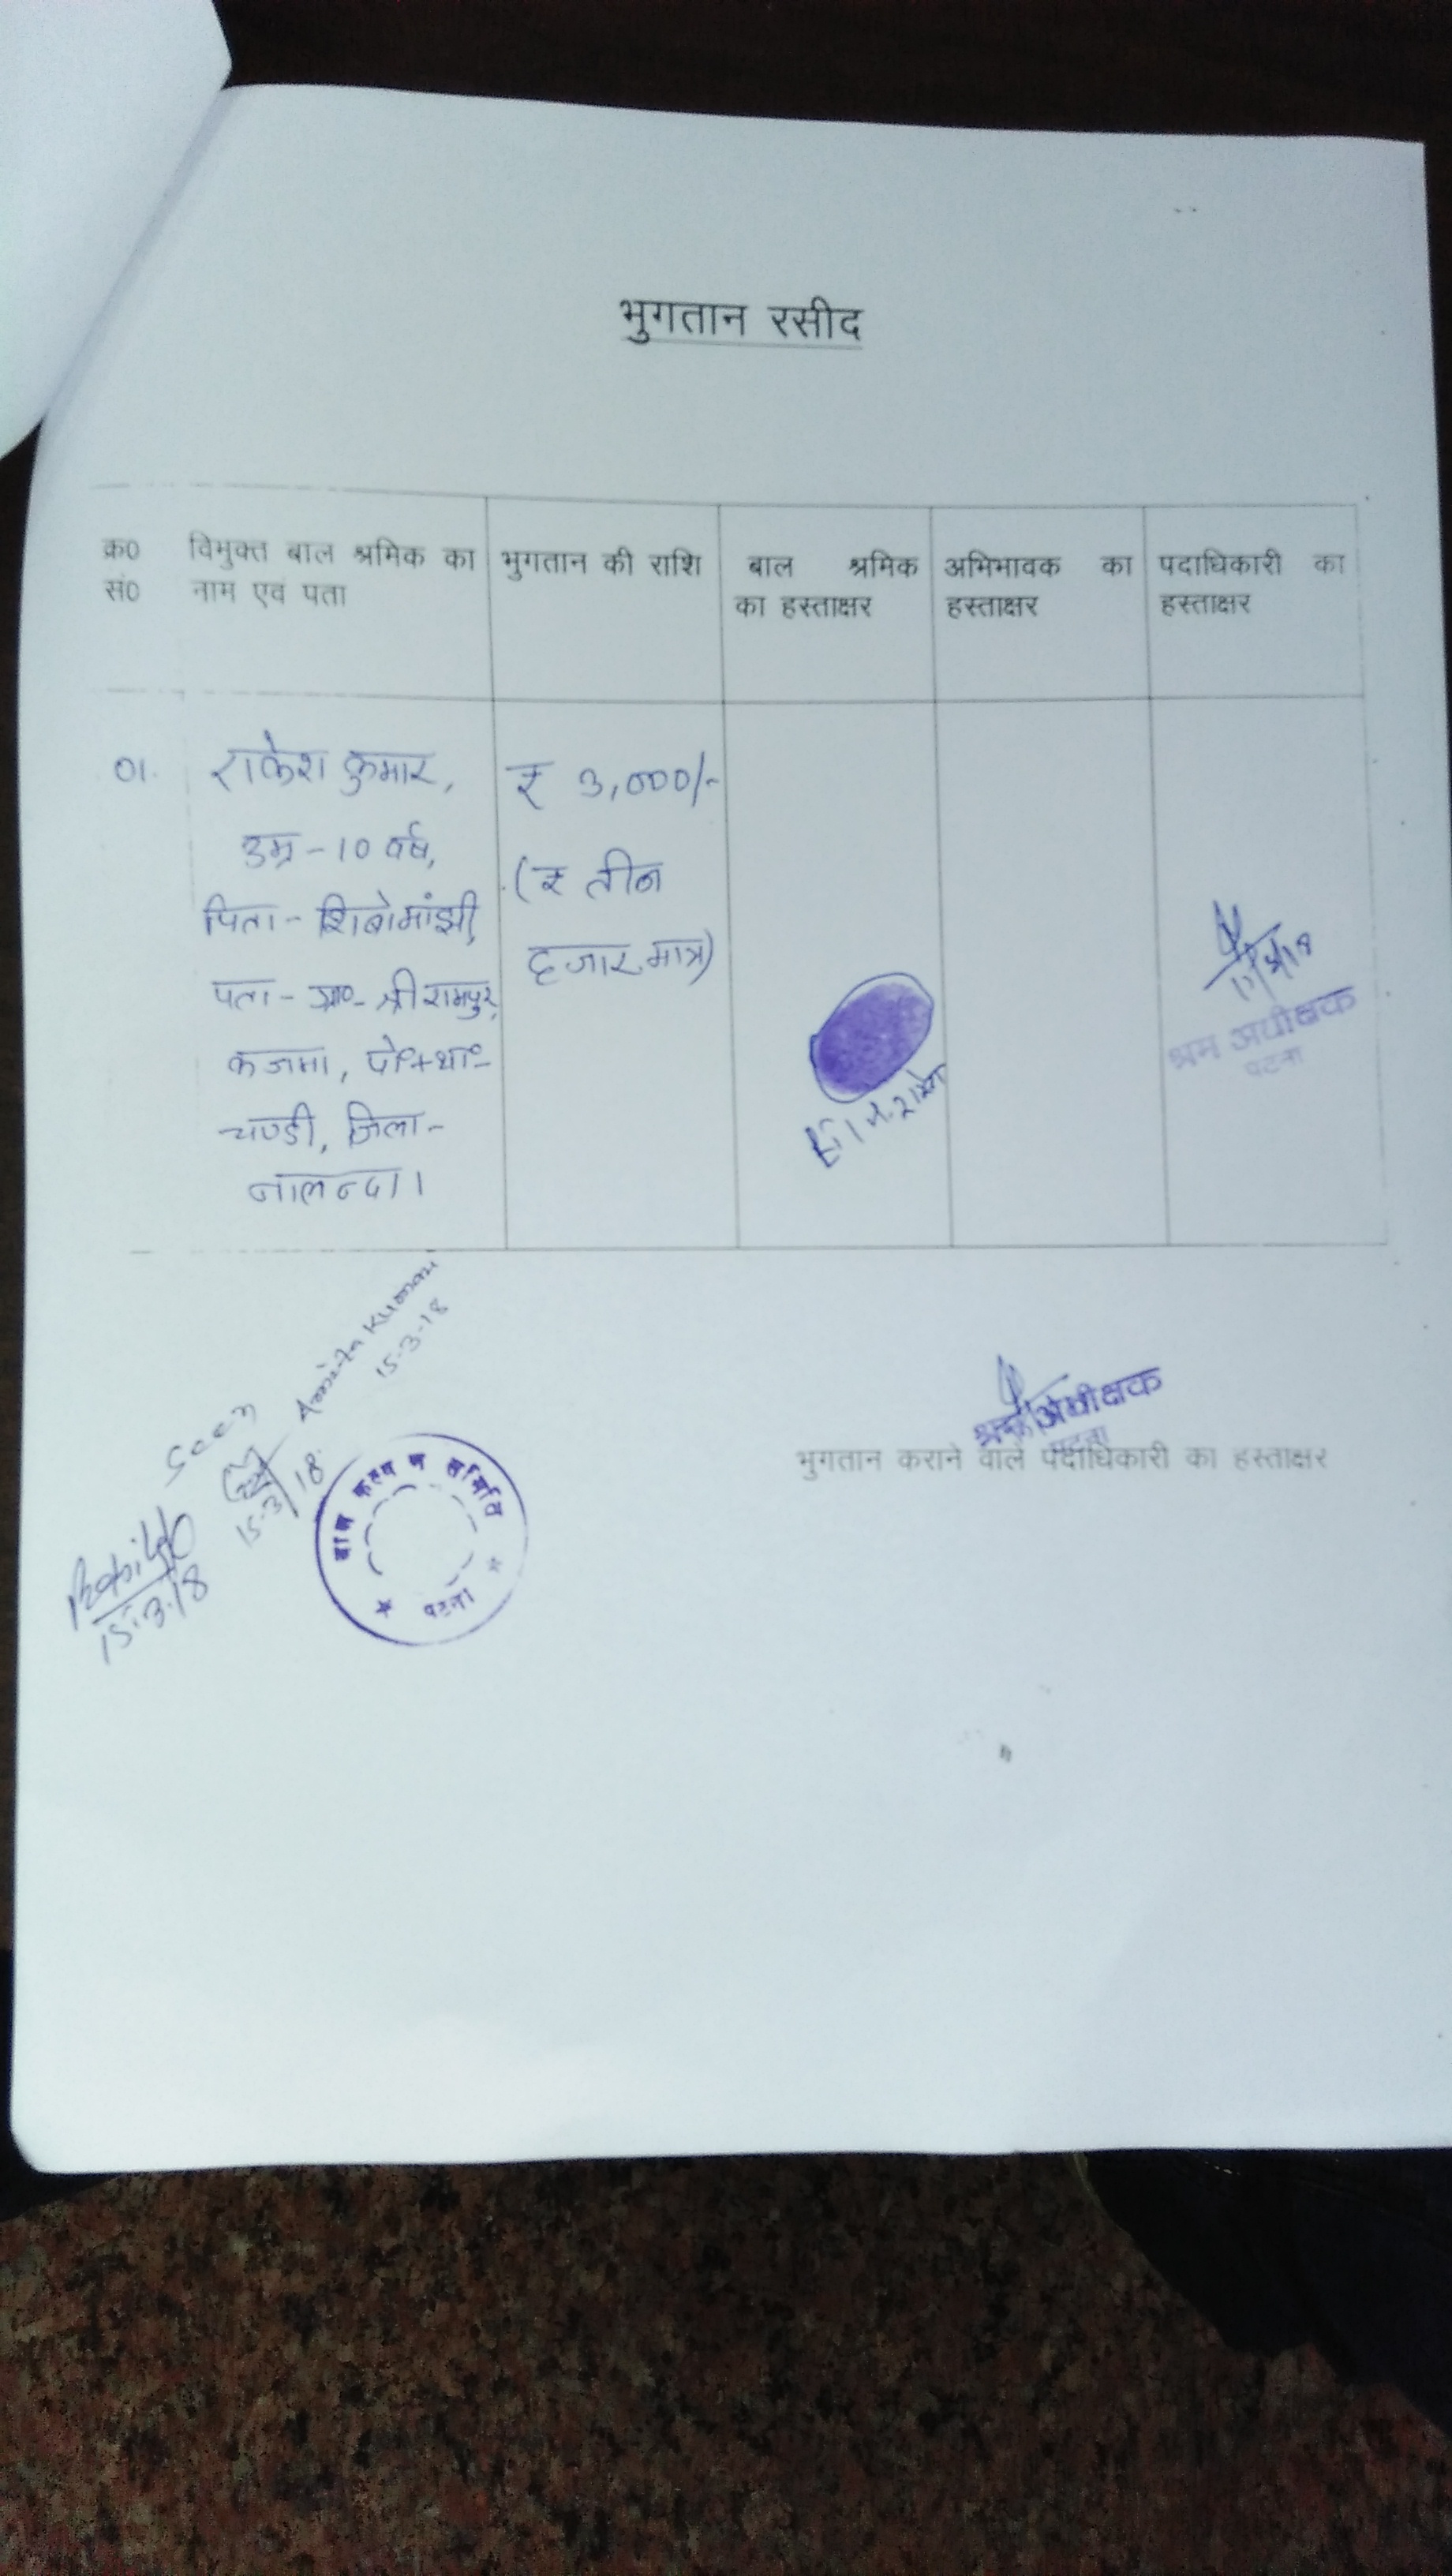 भुगतान रसीद
क्र० सं० विमुक्त बाल श्रमिक का नाम एवं पता
भुगतान की राशि
बाल श्रमिक का हस्ताक्षर
अभिभावक का हस्ताक्षर
पदाधिकारी का हस्ताक्षर
01. राकेश कुमार,
उम्र - 10 वर्ष,
पिता - शिबो मांझी,
पता - ग्रा०- श्रीरामपुर,
कजमा, पो०+था०-
चण्डी, जिला-
नालन्दा।
₹ 3,000/-
(₹ तीन
हजार मात्र)
श्रम अधीक्षक
पटना
Kumari
15-3-18
Seen
15-3/18
15.3.18
बाल कल्याण समिति
पटना
श्रम अधीक्षक
पटना
भुगतान कराने वाले पदाधिकारी का हस्ताक्षर